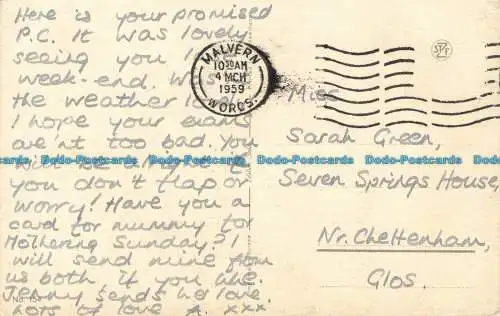 Here is your promised
P.C. It was lovely
seeing you
week-end. Was
the weather
I hope your exams
are'nt too bad. You
will be
you don't flap or
worry! Have you a
card for mummy for
Mothering Sunday? I
will send mine from
us both if you like.
Jenny sends he love.
Lots of love A. xxx
No. 15
MALVERN
10 30 AM
4 MCH
1959
WORCS.
Miss
Sarah Green,
Seven Springs House,
Nr. Cheltenham,
Glos.
Dodo-Postcards Dodo-Postcards Dodo-Postcards Dodo-Postcards Dodo-Postcards